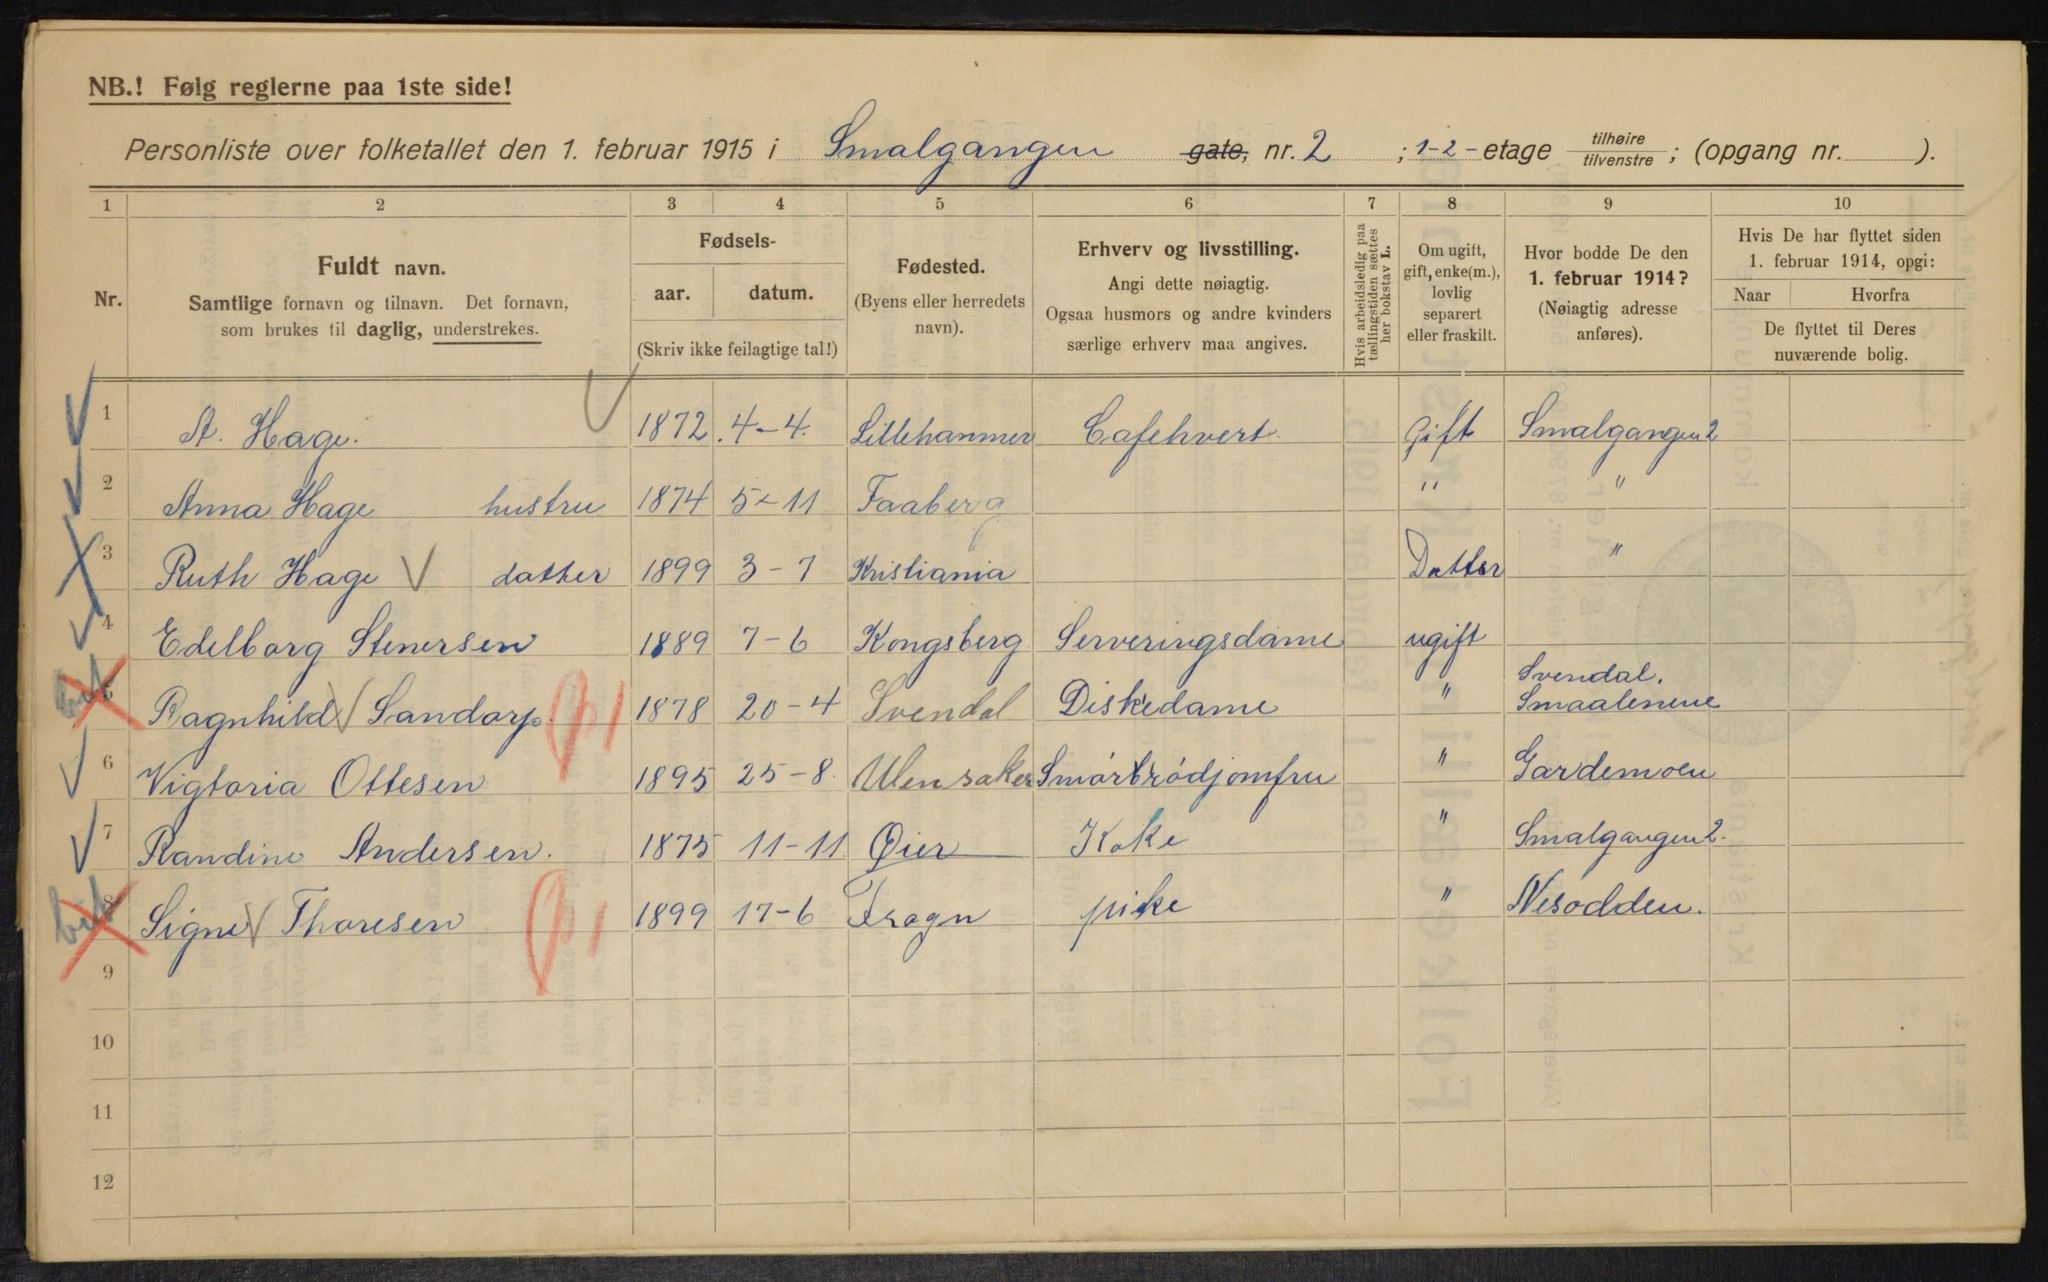 NB.! Følg reglerne paa 1ste side!
Personliste over folketallet den 1. februar 1915 i Smalgangen gate, nr. 2 ; 1-2- etage tilhøire tilvenstre ; (opgang nr. ).
1 2 3 4 5 6 7 8 9 10
Nr.
Fuldt navn.
Samtlige fornavn og tilnavn. Det fornavn,
som brukes til daglig, understrekes.
Fødsels-
aar. datum.
(Skriv ikke feilagtige tal!)
Fødested.
(Byens eller herredets
navn).
Erhverv og livsstilling.
Angi dette nøiagtig.
Ogsaa husmors og andre kvinders
særlige erhverv maa angives.
Hvis arbeidsledig paa
tællingstiden sættes
her bokstav L.
Om ugift,
gift, enke(m.),
lovlig
separert
eller fraskilt.
Hvor bodde De den
1. februar 1914?
(Nøiagtig adresse
anføres).
Hvis De har flyttet siden
1. februar 1914, opgi:
Naar Hvorfra
De flyttet til Deres
nuværende bolig.
1 A. Hage. 1872 4-4. Lillehammer Cafehvert. Gift Smalgangen 2
2 Anna Hage hustru 1874 5-11 Faaberg " "
3 Ruth Hage datter 1899 3-7 Kristiania Datter "
4 Edelborg Stenersen 1889 7-6 Kongsberg Serveringsdame ugift
5 Ragnhild Sandorp. 1878 20-4 Svendal Diskedame " Svendal.
Smaalenene
6 Vigtoria Ottesen 1895 25-8. Ulensaker Smørbrødjomfru " Gardemoen
7 Randine Andersen. 1875 11-11 Øier Koke " Smalgangen 2.
8 Signe Thoresen 1899 17-6 Frogn pike " Nesodden.
9
10
11
12